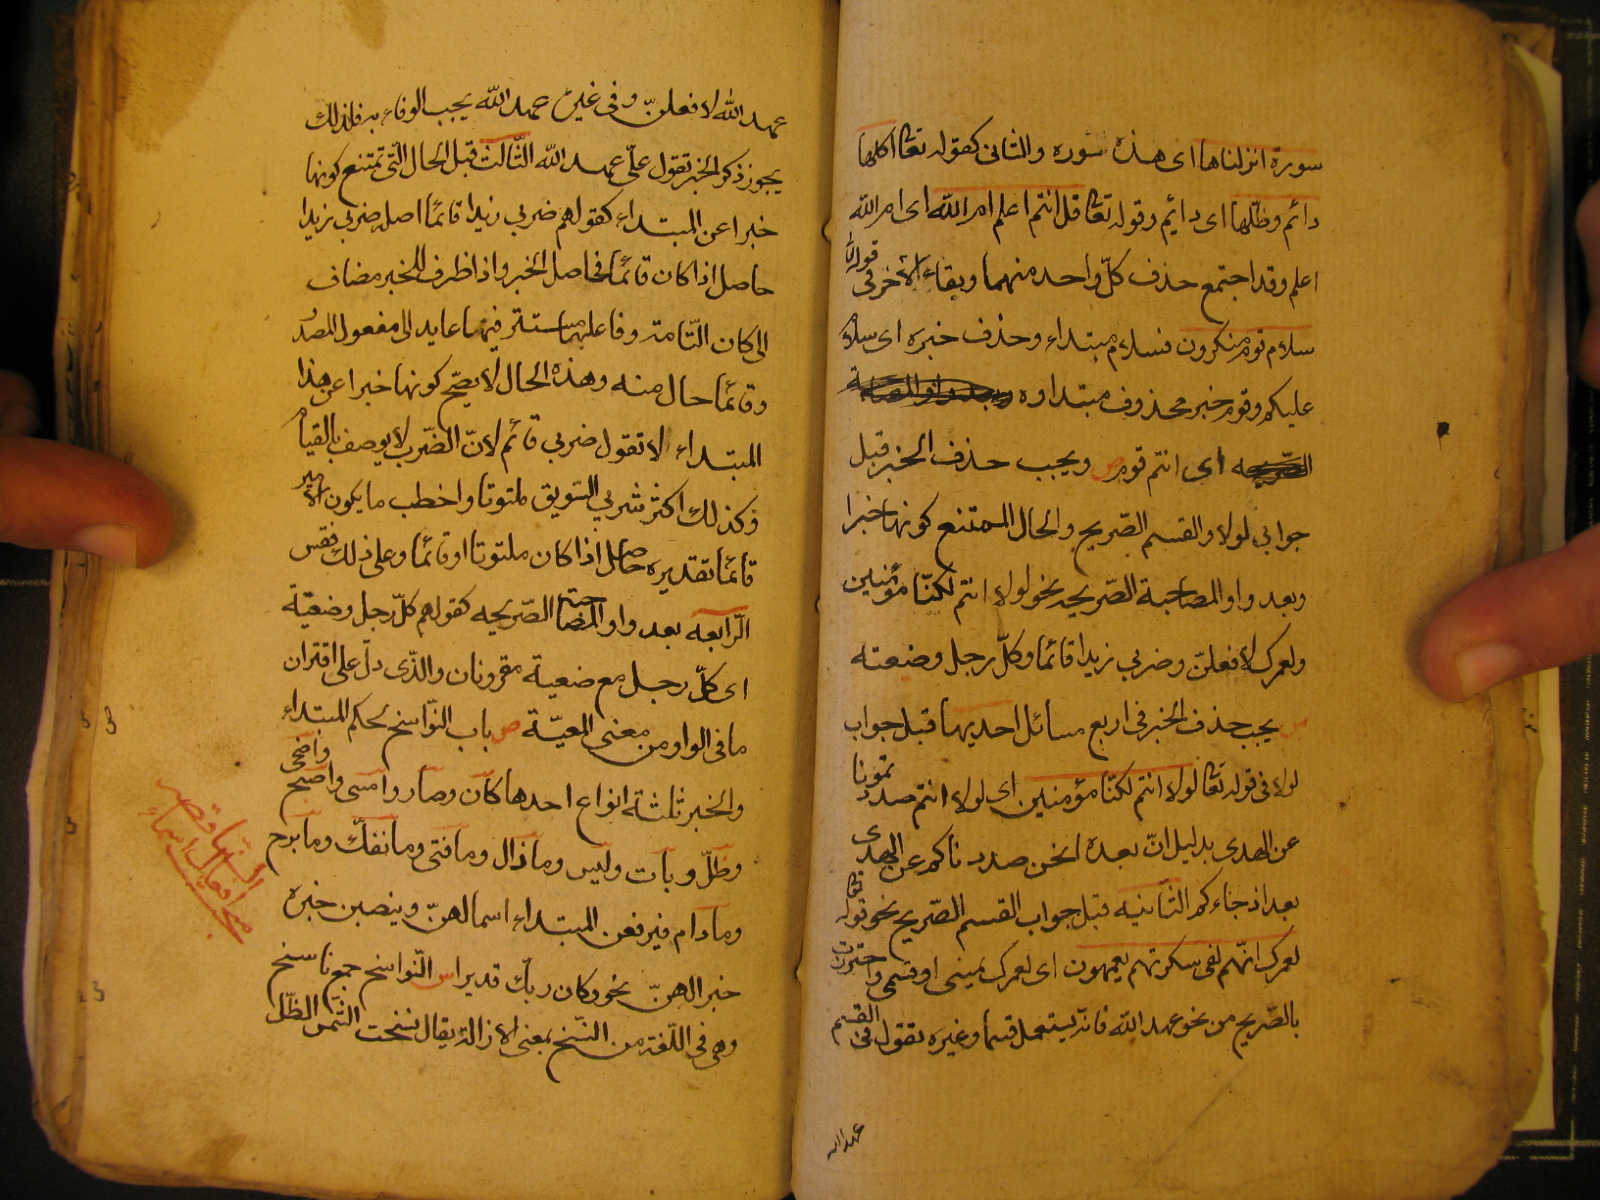 سورة انزلناها اى هذه سوره والثانى كقوله تعا اكلها
دائم وظلها اى دائم وقوله تعا قل انتم اعلم ام الله اى ام الله
اعلم وقد اجتمع حذف كلّ واحد منهما وبقاء الآخر فى قوله تعا
سلام قوم منكرون فسلام مبتداء وحذف خبره اى سلام
عليكم وقوم خبر محذوف مبتداوه
اى انتم قوم ص ويجب حذف الخبر قبل
جوابي لولا والقسم الصّريح والحال الممتنع كونها خبرا
وبعد واو المصاحبة الصّريحه نحو لولا انتم لكنّا مؤمنين
ولعمرك لافعلنّ وضربي زيدا قائما وكلّ رجل وضيعته
س يجب حذف الخبر فى اربع مسائل احديها قبل جواب
لولا فى قوله تعا لولا انتم لكنّا مؤمنين اى لولا انتم صددتمونا
عن الهدى بدليل انّ بعده انحن صددناكم عن الهدى
بعد اذ جاءكم الثانيه قبل جواب القسم الصّريح نحو قوله تعا
لعمرك انّهم لفى سكرتهم يعمهون اى لعمرك يمينى او قسمى واحترزت
بالصّريح من نحو عهد الله فانّه يستعمل قسما وغيره تقول فى القسم
عهد الله
عهد الله لافعلنّ وفى غيره عهد الله يجب الوفاء به فلذلك
يجوز ذكر الخبر تقول علىّ عهد الله الثّالث قبل الحال الّتى تمتنع كونها
خبرا عن المبتداء كقولهم ضربي زيدا قائما اصله ضربي زيدا
حاصل اذا كان قائما فحاصل الخبر واذا ظرف للخبر مضاف
الى كان التّامة وفاعلها مستتر فيها عايد الى مفعول المصدر
وقائما حال منه وهذه الحال لا يصّح كونها خبرا عن هذا
المبتداء لا تقول ضربي قائم لانّ الضّرب لا يوصف بالقيام
وكذلك اكثر شربي السّويق ملتوتا واخطب ما يكون الامير
قائما تقديره حاصل اذا كان ملتوتا او قائما وعلى ذلك فقس
الرّابعه بعد واو المصاحبة الصّريحه كقولهم كلّ رجل وضيعته
اى كلّ رجل مع ضيعته مقرونان والذّى دلّ على اقتران
ما فى الواو من معنى المعيّة ص باب النّواسخ لحكم المبتداء
والخبر ثلثة انواع احدها كان وصار وامسى واصبح واضحى
وظلّ وبات وليس وما زال وما فتى وما نفكّ وما برح
وما دام فيرفعن المبتداء اسما لهنّ وينصبن خبره
خبرا لهنّ نحو وكان ربّك قديرا س النّواسخ جمع ناسخ
وهى فى اللّغة من النّسخ بمعنى الازالة يقال نسخت الشّمس الظّل